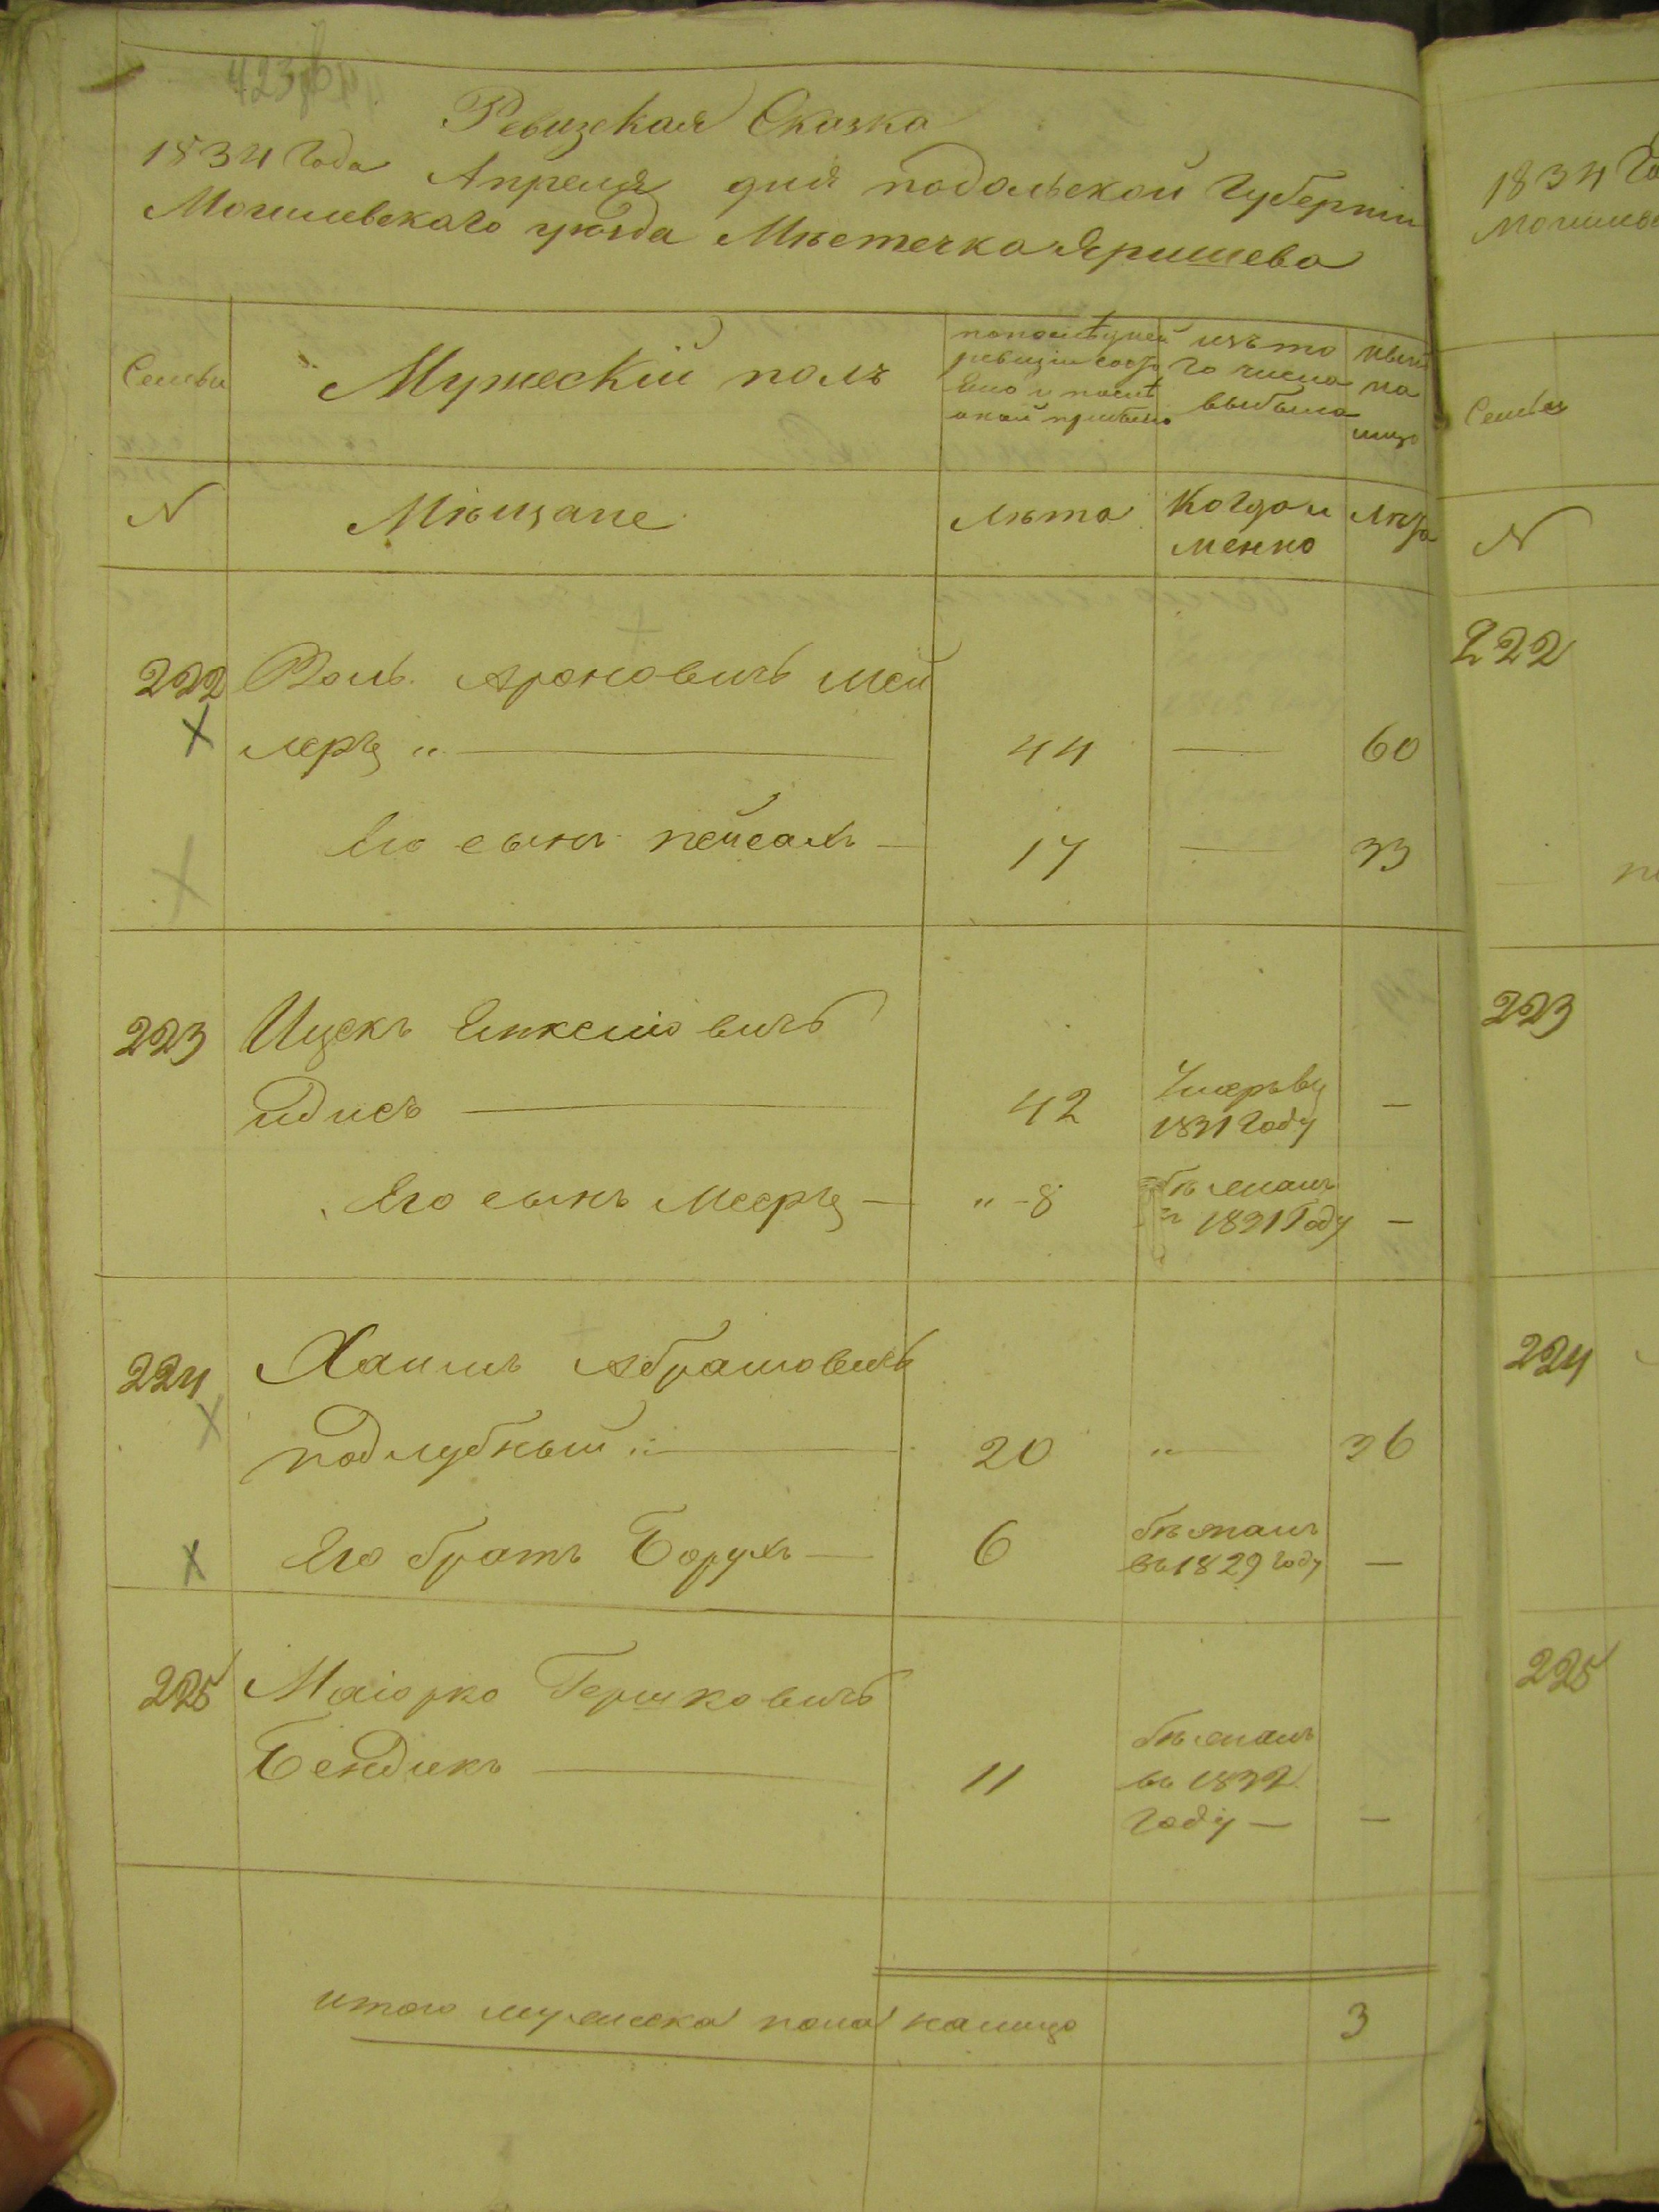 Ревизская Сказка
1834 Года Апреля дня подольской Губернии
Могилевскаго уѣзда Мѣстечка Яришева
Семьи
Мужескій полъ
по послѣдней ревизіи состояло и послѣ оной прибыло
изъ то го числа выбыло
нынѣ на лицо
N
Мѣщане
Лѣта
Когда и менно
Лѣта
222 Воль Ароновичъ Мей
леръ 44 — 60
Его сынъ пейсахъ — 17 — 33
223 Ицекъ Янкелiовичъ
идисъ 42 Умеръ въ 1831 Году —
Его сынъ Мееръ — 8 бѣжалъ въ 1831 Году —
224 Хаимъ Абрамовичъ
подлубный 20 " 36
Его братъ Борухъ — 6 бѣжалъ въ 1829 году —
225 Маіорко Гершковичъ
Бендикъ 11 бѣжалъ въ 1832 Году — —
итого мужеска пола налицо 3
1834 Го
Могилев
Семьи
N
222
223
224
225